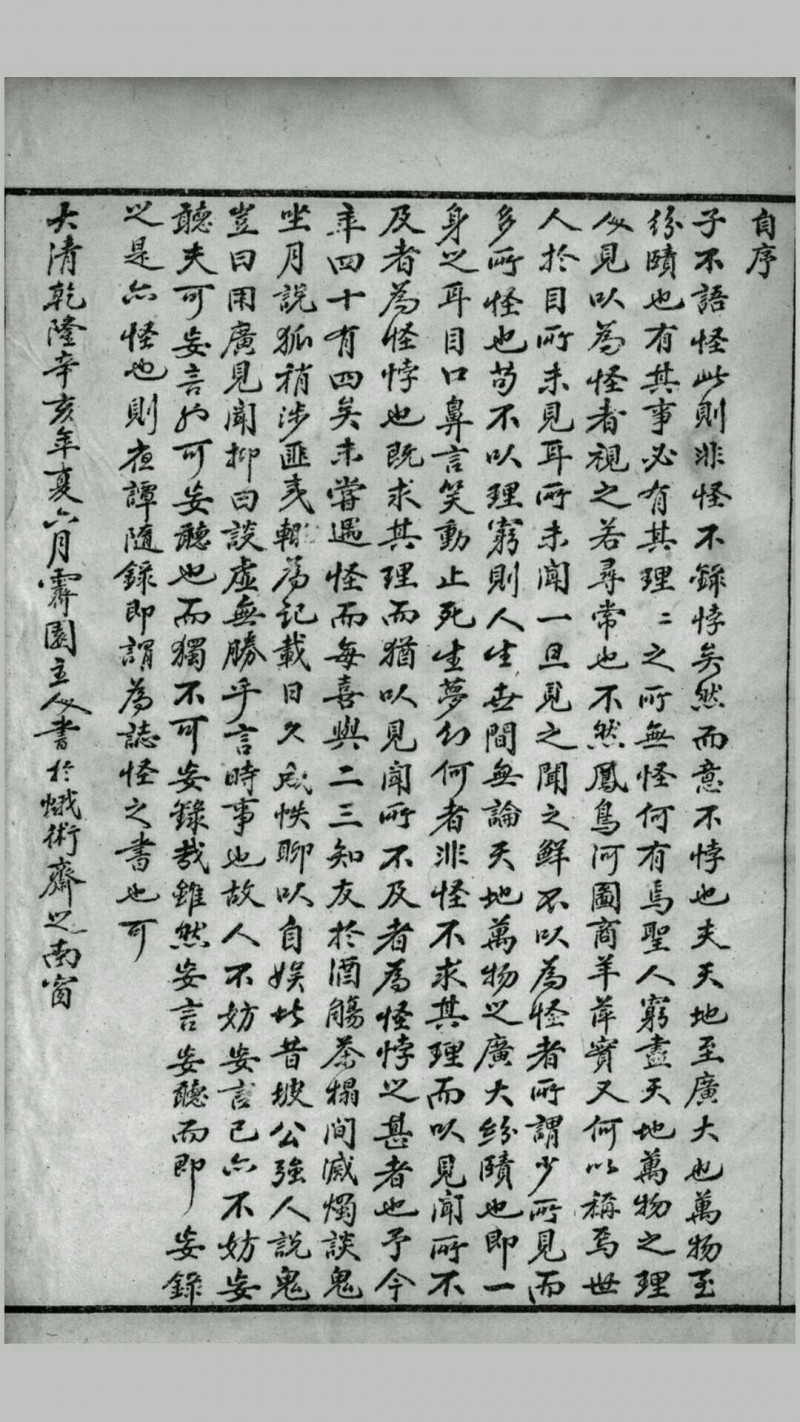 自序
子不語怪此則非怪不錄悖矣然而意不悖也夫天地至廣大也萬物至
紛賾也有其事必有其理〻之所無怪何有焉聖人窮盡天地萬物之理
人見以為怪者視之若尋常也不然鳳鳥河圖商羊萍實又何以稱焉世
人於目所未見耳所未聞一旦見之聞之鮮不以為怪者所謂少所見而
多所怪也苟不以理窮則人生世間無論天地萬物之廣大紛賾也即一
身之耳目口鼻言笑動止死生夢幻何者非怪不求其理而以見聞所不
及者為怪悖也既求其理而猶以見聞所不及者為怪悖之甚者也予今
年四十有四矣未嘗遇怪而每喜與二三知友於酒觴茶榻間滅燭談鬼
坐月說狐稍涉匪夷輒為記載日久成帙聊以自娛昔坡公強人說鬼
豈曰用廣見聞抑曰談虛無勝乎言時事也故人不妨妄言己亦不妨妄
聽夫可妄言也可妄聽也而獨不可妄錄哉雖然妄言妄聽而即妄錄
之是亦怪也則夜譚隨錄即謂為誌怪之書也可
大清乾隆辛亥年夏六月霽園主人書於蛾術齋之南窗